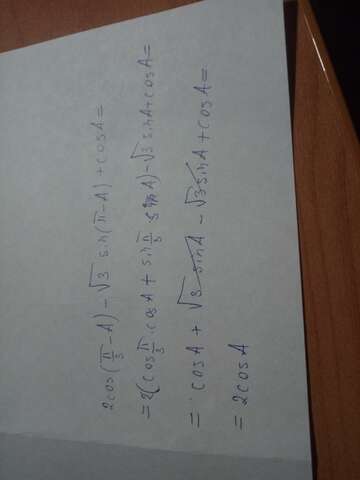 2cos(π/3-A)-√3 sin(π-A)+cosA=
=2(cos π/3·cosA+sin π/3 sinA)-√3 sinA+cosA=
=cosA+√3 sinA-√3 sinA+cosA=
=2cosA